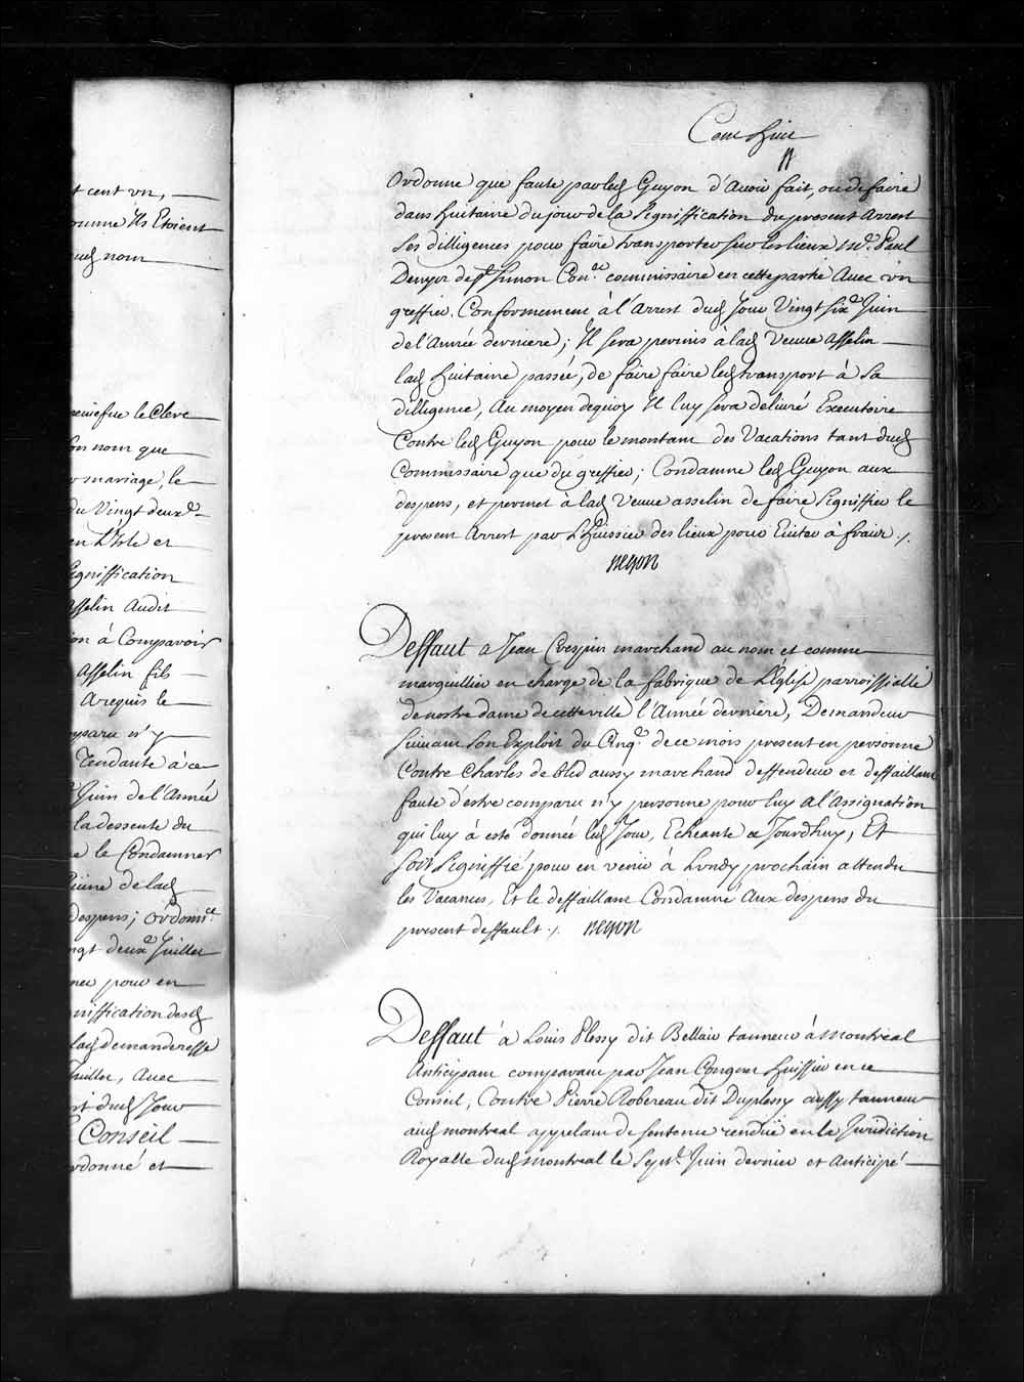 t cent vn,
ounne Ils Etoient
uds nom
le Clerc
son nom que
mariage, le
du Vingt deuxe
en L'Isle et
signiffication
asselin Audit
on à Comparoir
Asselin fils
A requis le
mparu n'y
Tendante à ce
Juin de l'Année
la dessente du
le Condamner
de lad
despens; ordonce
ngt deuxe Juillet
pour en
niffication desd
lad demanderesse
Juillet, Avec
dud Jour
Conseil
rdonné et
Cone huit
Ordonne que faute par led Guyon d'Auoir fait, ou de faire
dans huitaine du jour de la signiffication du present Arrest
ses dilligences pour faire transporter sur les lieux Me. Paul
Denys de St Simon Coner. commissaire en cette partie Auec un
greffier. Conformement à l'Arrest dud Jour Vingt sixe Juin
de l'Année derniere; Il sera permis à lad Veuue Asselin
lad huitaine passée, de faire faire led transport à sa
dilligence, Au moyen dequoy Il luy sera deliuré Executoire
Contre led Guyon pour le montant des Vacations tant dud
Commissaire que du greffier; Condamne led Guyon aux
despens, et permet à lad Veuue asselin de faire signiffier le
present Arrest par L'huissier des lieux pour Euiter à fraix ./.
negon
Deffaut a Jean Crespin marchand au nom et comme
marguillier en charge de la fabrique de L'Eglise parroissialle
de nostre dame de cette ville l'Année derniere, Demandeur
suiuant son Exploit du Cinqe. de ce mois present en personne
Contre Charles de bled aussy marchand deffendeur et deffaillant
faute d'estre comparu n'y personne pour luy a l'Assignation
qui luy à esté donnée led Jour, Echeante a Jourdhuy, Et
soit signiffié pour en venir à Lundy prochain attendu
les Vacances, Et le deffaillant Condamné Aux despens du
present deffault ./. negon
Deffaut à Louis Plessy dit Bellair tanneur à montreal
Anticipant comparant par Jean Congnet huissier en ce
Conseil, Contre Pierre Robereau dit Duplessy aussy tanneur
aud montreal appelant de sentence renduë en la Juridiction
Royalle dud montreal le Septe. Juin dernier et Anticipé